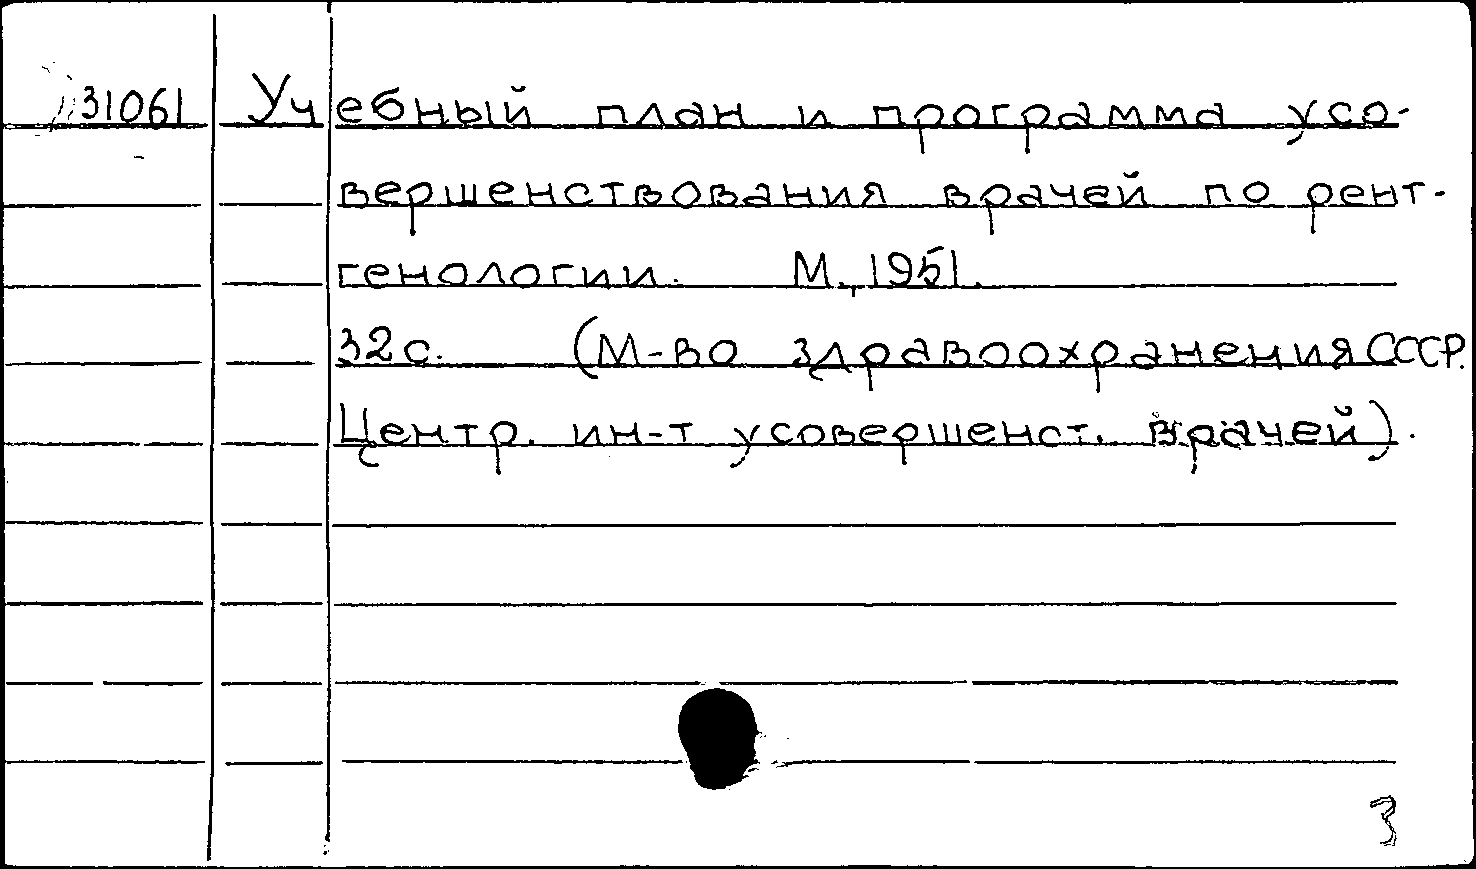 31061 Учебный план и программа усо-
вершенствования врачей по рент-
генологии. М., 1951.
32 с. (М-во здравоохранения СССР.
Центр. ин-т усовершенст. врачей).
3